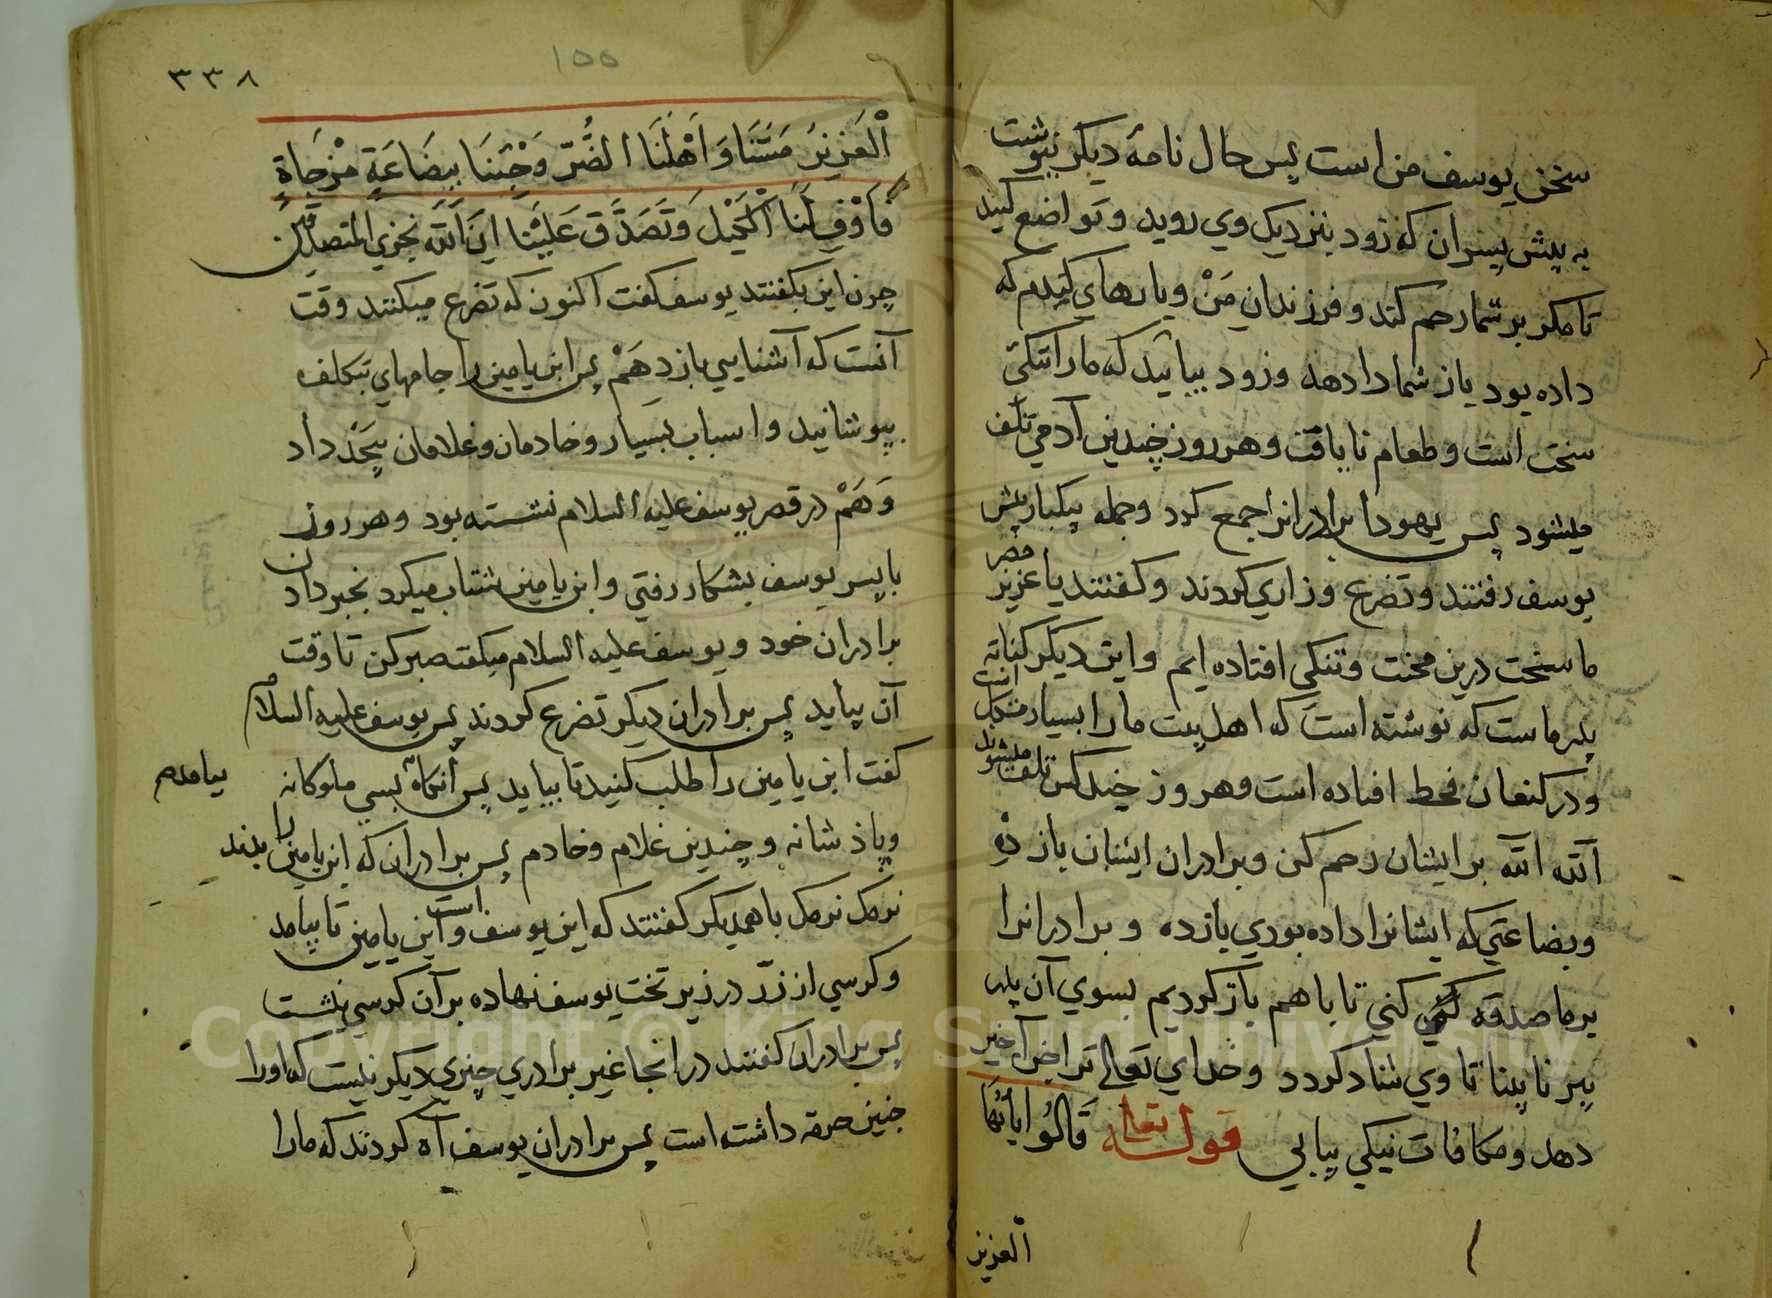 سخن يوسف من است پس حال نامهٔ ديكر نبوشت
به پيش پسران كه زود بنزديك وي رويد و تواضع كنيد
تا مكر بر شما رحم كند و فرزندان من و بارهاي كندم كه
داده بود باز شما را دهد و زود بيائيد كه ما را تنكئ
سخت است و طعام نا يافت و هر روز چندين آدمي تلف
ميشود پس يهودا برادرانرا جمع كرد و جمله بيكبار پيش
يوسف رفتند و تضرع و زاري كردند و كفتند يا عزيز مصر
ما سخت درين محنت و تنكى افتاده ايم و اين ديكر كتابه
پدر ماست كه نوشته است كه اهل بيت ما را بسيار مشكل است
و در كنعان قحط افتاده است و هر روز چند كس تلف ميشوند
الله الله بر ايشان رحم كن و برادران ايشان باز ده
و بضاعتي كه ايشانرا داده بودي باز ده و برادرانرا
بر ما صدقه كني تا با هم باز كرديم بسوي آن پدر
پير نا بينا تا وي شاد كردد و خداي تعالى ترا جزاء خير
دهد و مكافات نيكي بيابي قوله تعالى قالوا يا ايها
العزيز
٣٣٨
١٥٥
الْعَزِيزُ مَسَّنَا وَاَهْلَنَا الضُّرُّ وَجِئْنَا بِبِضَاعَةٍ مُزْجَاةٍ
فَاَوْفِ لَنَا الْكَيْلَ وَتَصَدَّقْ عَلَيْنَا اِنَّ اللّٰهَ يَجْزِي الْمُتَصَدِّقِينَ
چون اين بكفتند يوسف كفت اكنون كه تضرع ميكنند وقت
آنست كه آشنايي باز دهم پس ابن يامين را جامهاي بتكلف
بپوشانيد و اسباب بسيار و خادمان و غلامان بيحد داد
و هم در قصر يوسف عليه السلام نشسته بود و هر روز
با پسر يوسف بشكار رفتي و ابن يامين شتاب ميكرد بخبر دادن
برادران خود و يوسف عليه السلام ميكفت صبر كن تا وقت
آن بيايد پس برادران ديكر تضرع كردند پس يوسف عليه السلام
كفت ابن يامين را طلب كنيد تا بيايد پس آنكاه بسي ملوكانه بيامدم
و پادشانه و چندين غلام و خادم پس برادران كه ابن يامين را بديدند
نرمك نرمك با همديكر كفتند كه اين يوسف است و اين ابن يامين تا بيامد
و كرسي از زر در زير تخت يوسف نهاده بر آن كرسي نشست
پس برادران كفتند در انجا غير برادري چيزي ديكر نيست كه اورا
چنين حرمة داشته است پس برادران يوسف آه كردند كه ما را